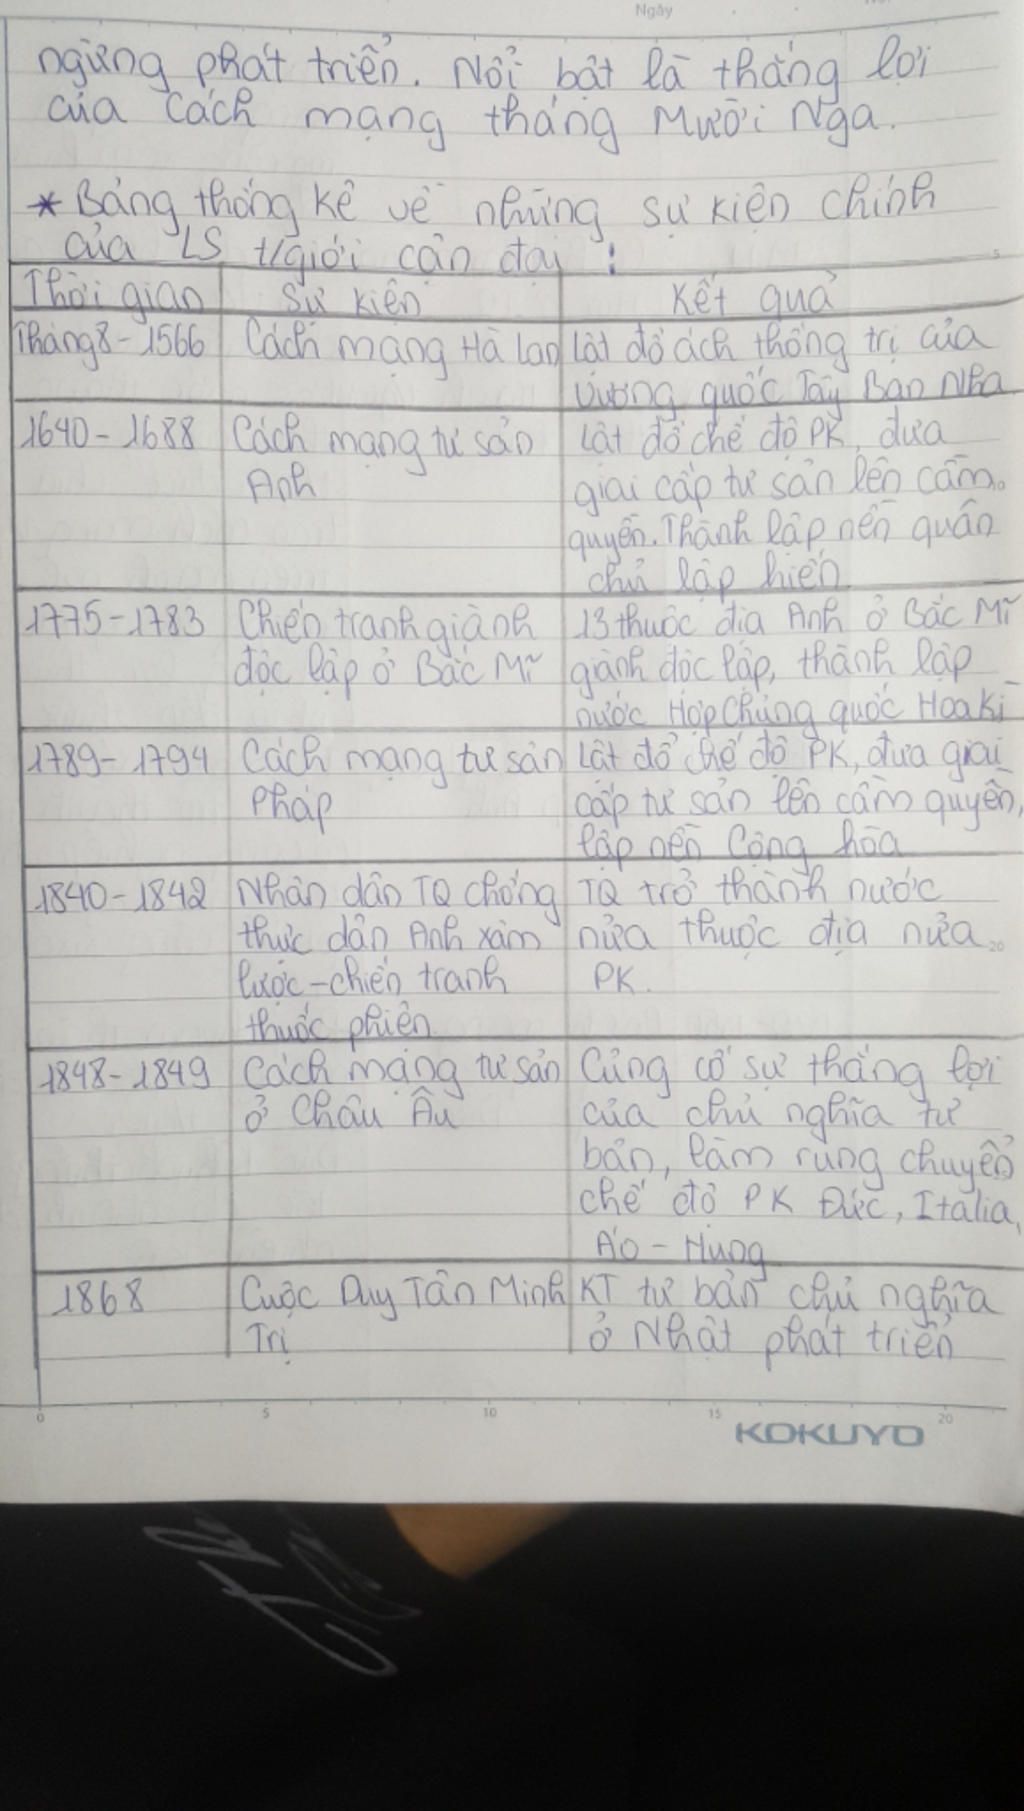 Ngày
ngừng phát triển. Nổi bật là thắng lợi
của Cách mạng tháng Mười Nga.
* Bảng thống kê về những sự kiện chính
của LS t/giới cận đại :
Thời gian Sự kiện Kết quả
Tháng 8 - 1566 Cách mạng Hà Lan Lật đổ ách thống trị của
Vương quốc Tây Ban Nha
1640 - 1688 Cách mạng tư sản Lật đổ chế độ PK, đưa
Anh giai cấp tư sản lên cầm
quyền. Thành lập nền quân
chủ lập hiến
1775 - 1783 Chiến tranh giành 13 thuộc địa Anh ở Bắc Mĩ
độc lập ở Bắc Mĩ giành độc lập, thành lập
nước Hợp Chúng quốc Hoa Kì
1789 - 1794 Cách mạng tư sản Lật đổ chế độ PK, đưa giai
Pháp cấp tư sản lên cầm quyền,
lập nền Cộng hòa
1840 - 1842 Nhân dân TQ chống TQ trở thành nước
thực dân Anh xâm nửa thuộc địa nửa
lược - chiến tranh PK.
thuốc phiện
1848 - 1849 Cách mạng tư sản Củng cố sự thắng lợi
ở Châu Âu của chủ nghĩa tư
bản, làm rung chuyển
chế độ PK Đức, Italia,
Áo - Hung
1868 Cuộc Duy Tân Minh KT tư bản chủ nghĩa
Trị ở Nhật phát triển
0 5 10 15 20
KOKUYO